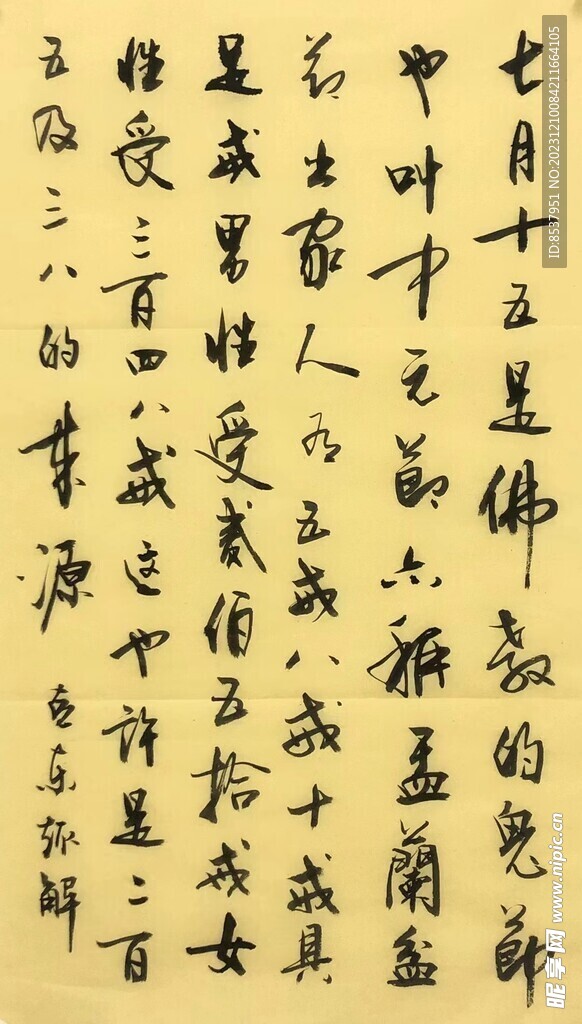 七月十五是佛教的鬼節
也叫中元節亦稱盂蘭盆
節出家人有五戒八戒十戒具
足戒男性受贰佰五拾戒女
性受三百四八戒这也許是二百
五及三八的来源
东 解
ID:8537951 NO:20231210084211664105
昵享网 www.nipic.cn